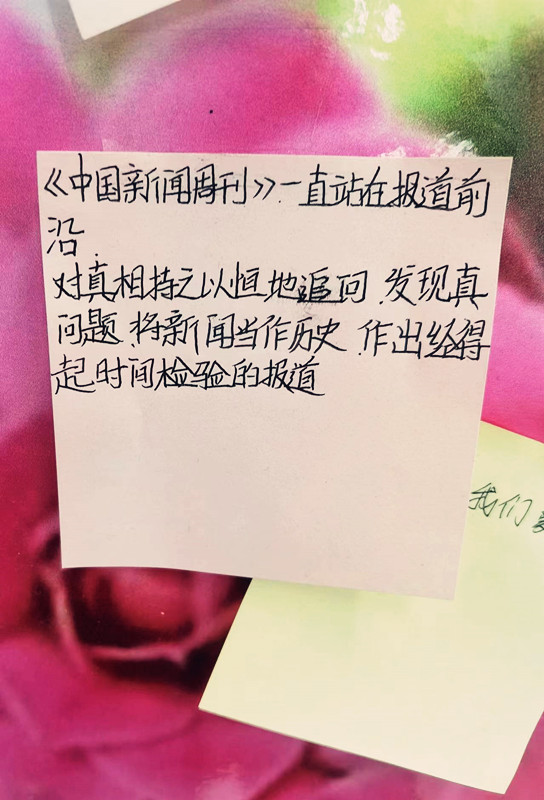 《中国新闻周刊》.一直站在报道前
沿.
对真相持之以恒地追问.发现真
问题.将新闻当作历史.作出经得
起时间检验的报道
我们